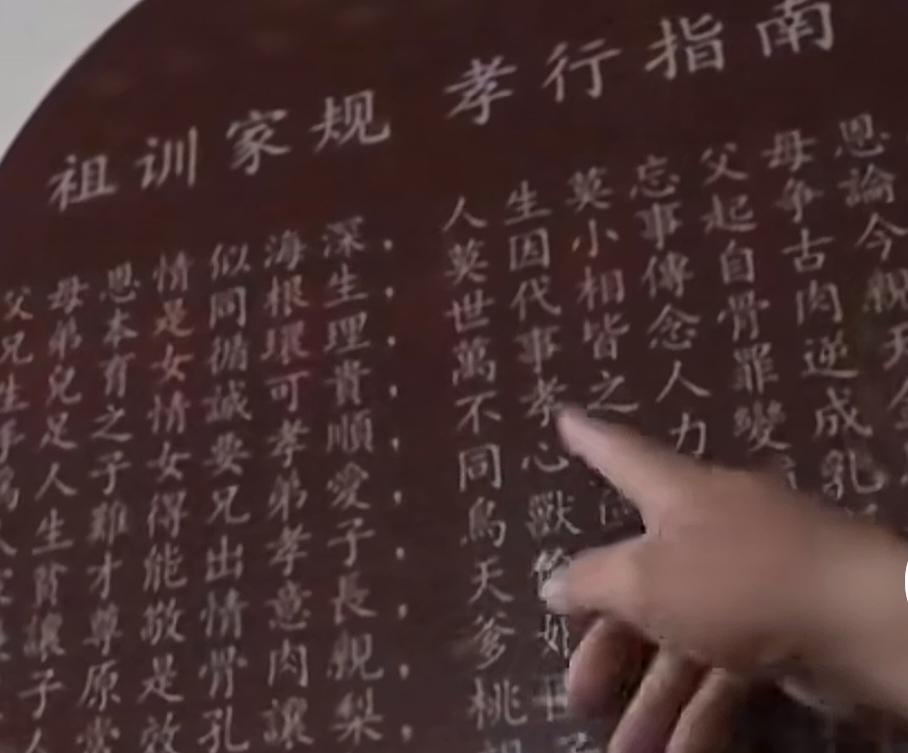 祖训家规 孝行指南
父母恩情似海深， 人生莫忘父母恩
兄弟本是同根生， 莫因小事起争論
生兒育女循環理， 世代相傳自古今
手足之情誠可貴， 萬事皆念骨肉親
爲人子女要孝順， 不孝之人罪逆天
人生難得兄弟愛， 同心力變成金
家貧才能出孝子， 鳥獸乳
讓尊敬情意長， 天
子原是骨肉親， 爹娘
人常效孔讓梨， 桃